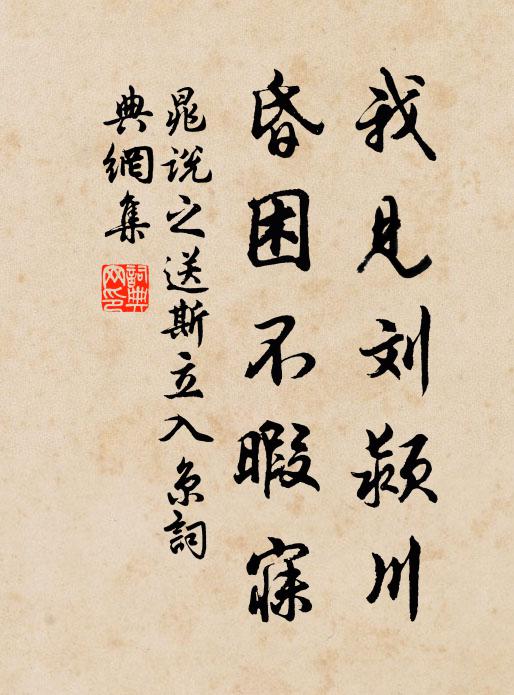 我见刘颍川
昏困不暇寐
晁说之送斯立入京词
典網集
詞典网印